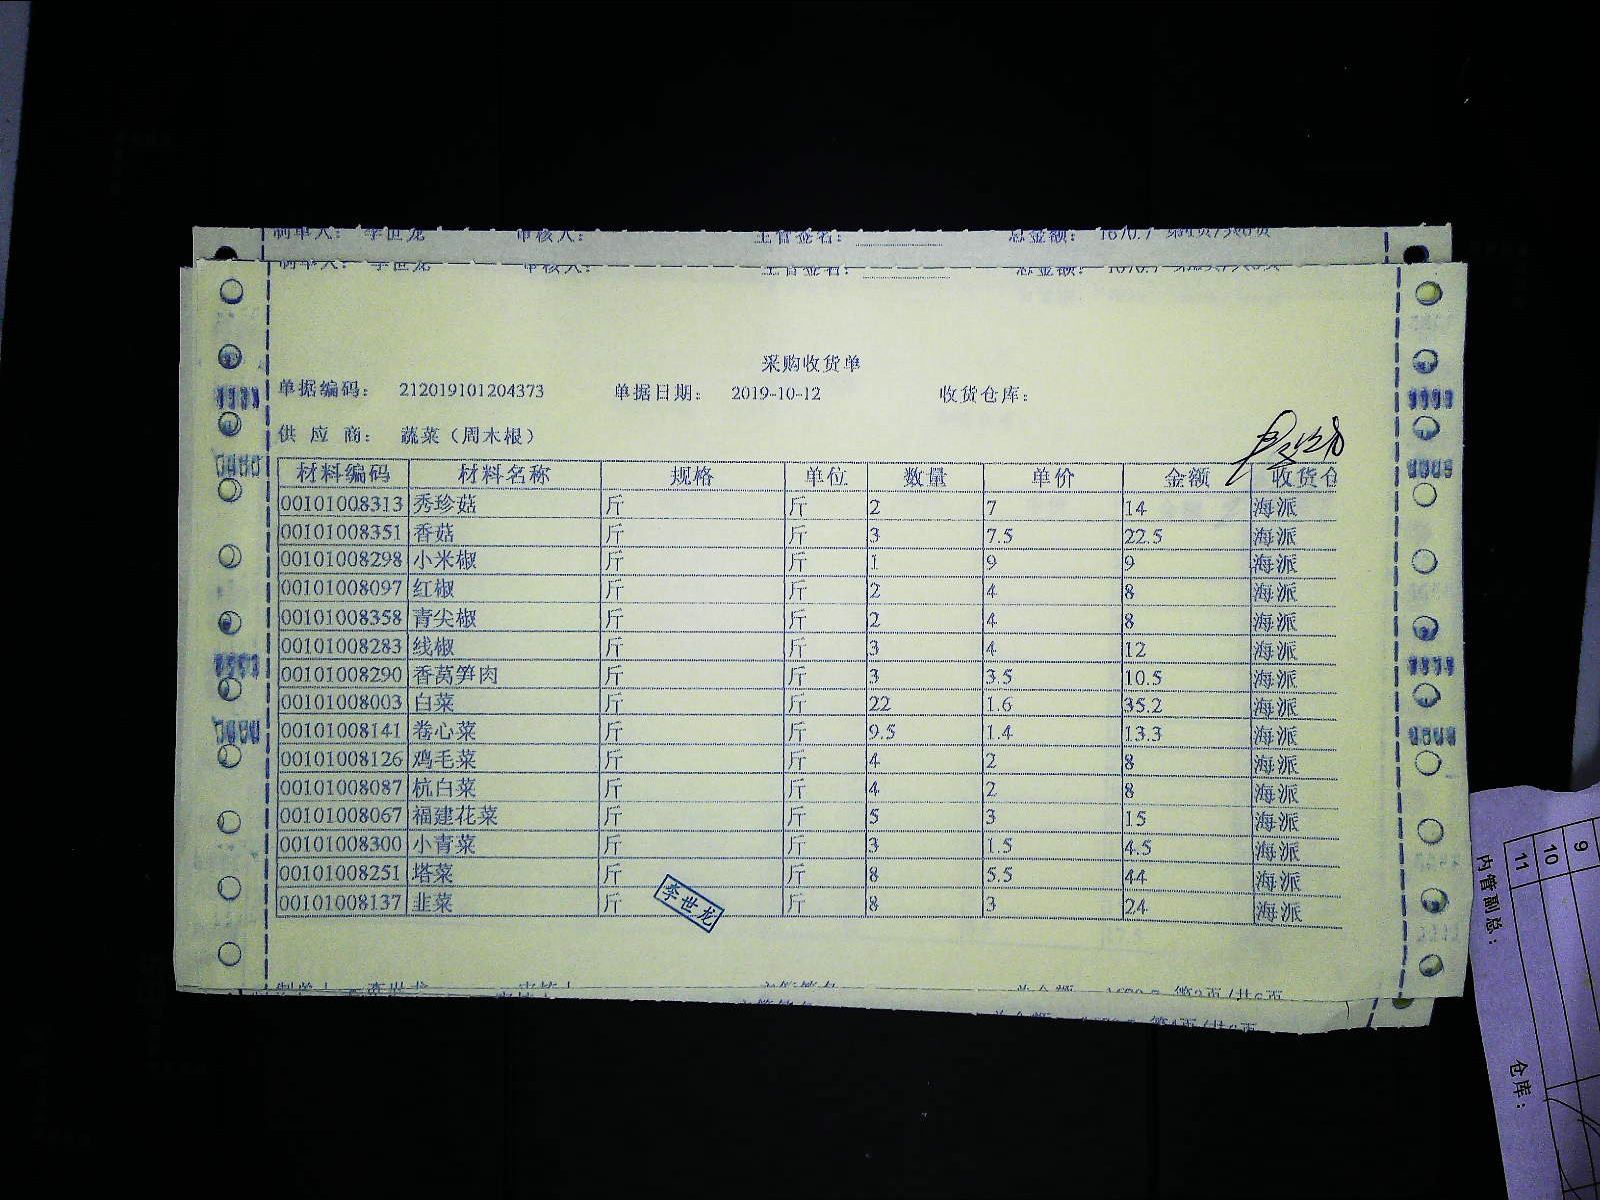 制单人： 李世龙 审核人： 主管签名： 总金额： 1670.7
制单人： 李世龙 审核人： 主管签名： 总金额： 1670.7
采购收货单
单据编码： 212019101204373 单据日期： 2019-10-12 收货仓库：
供 应 商： 蔬菜（周木根）
材料编码 材料名称 规格 单位 数量 单价 金额 收货仓
00101008313 秀珍菇 斤 斤 2 7 14 海派
00101008351 香菇 斤 斤 3 7.5 22.5 海派
00101008298 小米椒 斤 斤 1 9 9 海派
00101008097 红椒 斤 斤 2 4 8 海派
00101008358 青尖椒 斤 斤 2 4 8 海派
00101008283 线椒 斤 斤 3 4 12 海派
00101008290 香莴笋肉 斤 斤 3 3.5 10.5 海派
00101008003 白菜 斤 斤 22 1.6 35.2 海派
00101008141 卷心菜 斤 斤 9.5 1.4 13.3 海派
00101008126 鸡毛菜 斤 斤 4 2 8 海派
00101008087 杭白菜 斤 斤 4 2 8 海派
00101008067 福建花菜 斤 斤 5 3 15 海派
00101008300 小青菜 斤 斤 3 1.5 4.5 海派
00101008251 塔菜 斤 斤 8 5.5 44 海派
00101008137 韭菜 斤 斤 8 3 24 海派
李世龙
9
10
11
内管副总：
仓库：